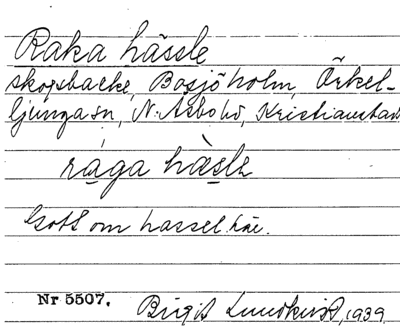 Raka hässle
skogsbacke, Bosjöholm, Örkel-
ljunga sn, N. Åsbo hd, Kristianstad
rága hàsle
Gott om hassel här.
Nr 5507. Birgit Lundkvist, 1939